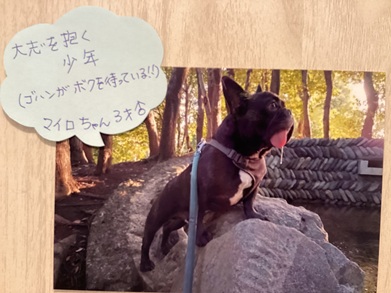 大志を抱く
少年
(ゴハンがボクを待っている!!)
マイロちゃん3才